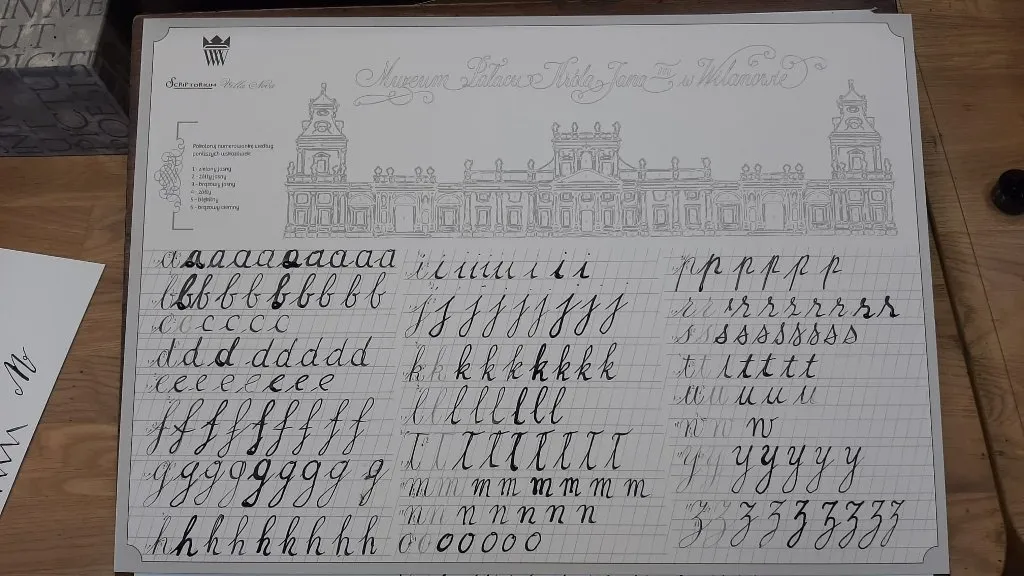 IN ME
UT
SCRIPTORIUM Villa Nova
Muzeum Pałacu Króla Jana III w Wilanowie
Pokoloruj numerowankę według
poniższych wskazówek:
1 - zielony jasny
2 - żółty jasny
3 - brązowy jasny
4 - żółty
5 - błękitny
6 - brązowy ciemny
a a a a a a a a a a
b b b b b b b b b b
c c c c c c
d d d d d d d d
e e e e e e e e
f f f f f f f f f
g g g g g g g g g
h h h h h h h h h
i i i i i i i i
j j j j j j j j j
k k k k k k k k k
l l l l l l l l
ł ł ł ł ł ł ł ł ł
m m m m m m m m
n n n n n n n
o o o o o o o
p p p p p p
r r r r r r r r r
s s s s s s s s
t t t t t t
u u u u u
w w w
y y y y y y y
z z z z z z z z z